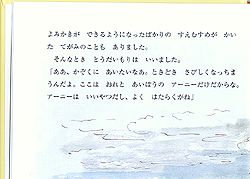 よみかきが できるようになったばかりの すえむすめが かい
た てがみのことも ありました。
そんなとき とうだいもりは いいました。
「ああ、かぞくに あいたいなあ。ときどき さびしくなっちま
うんだよ。ここは おれと あいぼうの アーニーだけだからな。
アーニーは いいやつだし、よく はたらくがね」